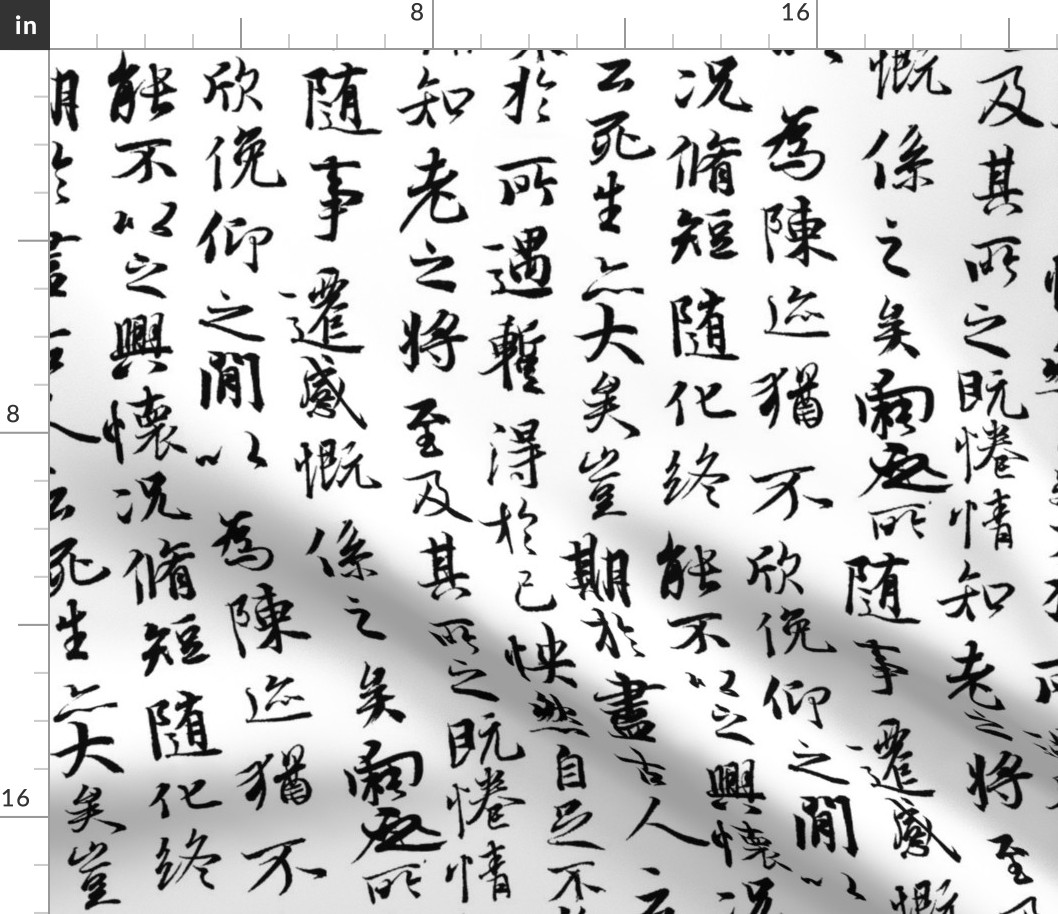 in
8
16
8
16
及其所之既惓情知老之將至
慨係之矣向之所随事遷感慨
以為陳迹猶不欣俛仰之閒以
況脩短随化终能不以之興懷況
云死生亦大矣豈期於盡古人云
於所遇蹔得於己怏然自足不
知老之將至及其所之既惓情
随事遷感慨係之矣向之所
欣俛仰之閒以為陳迹猶不
能不以之興懷況脩短随化终
云死生亦大矣豈